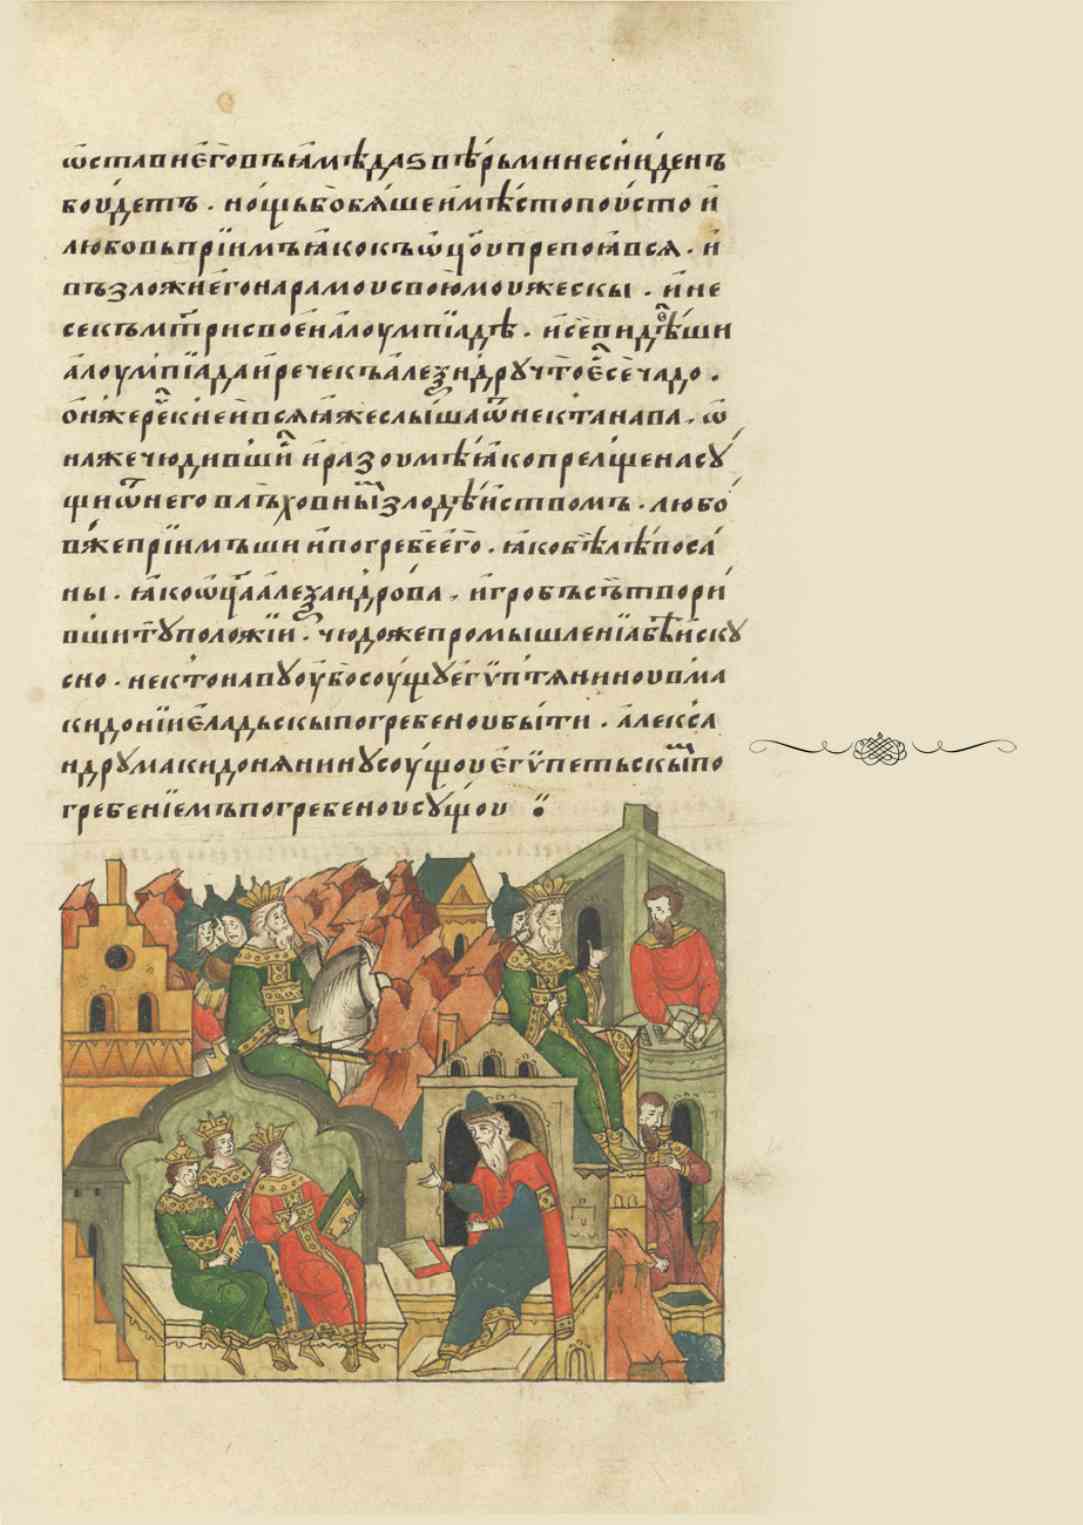 ѡставиегов̾ꙗмѣдаѕвѣрьминесн̾ѣденъ
боудетъ · нощьбобѧшеимѣстопоусто и
любовьпрїимъꙗкокъѡц҃оупрепоꙗвсѧ · и
възложиегонарамоусвоюмоужескы · ине
секъмт҃рисвоеиалоумпїадѣ · исевидѣвши
алоумпїадаиречекъалеѯндрꙋчтоесⷭ҇ечадо ·
ониже​ре​кⷦ҇​неивсѧꙗжеслышаѿнектанава · ѡ
нажечюдивши и​разоумѣꙗкопрелщенасꙋ
щиѿнеговлъховныⷨзлодѣиствомъ · любо
вжепрїимъши ипогребеего · ꙗкобѣлѣпоса
ны · ꙗкоѡц҃аалеѯандрова · игробъсътвори
вшитꙋположїи · чюдожепромышленїабж҃їискꙋ
сно · нектонавꙋоубосоущꙋегѵптѧниноувма
кидонїиеладьскыпогребеноубыти · алекса
ндрꙋмакидонѧнинꙋсоущоуегѵпетьскыⷨпо
гребенїемъпогребеноусꙋщоу